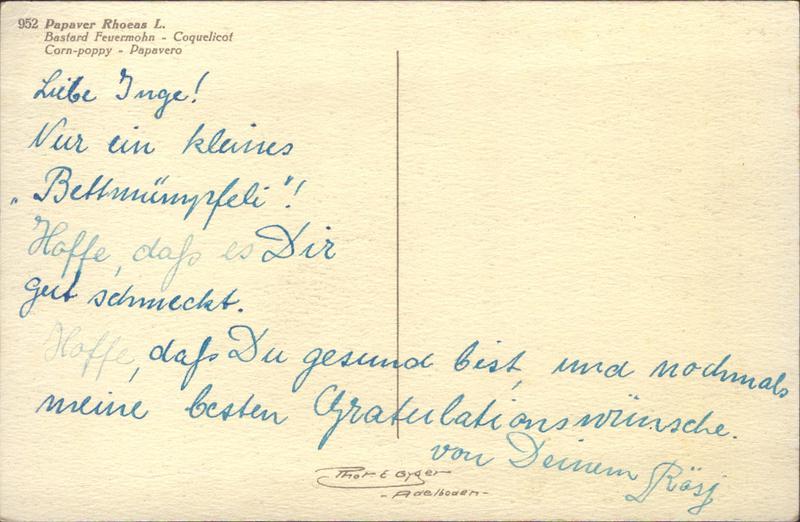 952 Papaver Rhoeas L.
Bastard Feuermohn - Coquelicot
Corn-poppy - Papavero
Liebe Inge!
Nur ein kleines
„Bettmümpfeli"!
Hoffe, daß es Dir
gut schmeckt.
Hoffe, daß Du gesund bist, und nochmals
meine besten Gratulationswünsche.
von Deinem Rösj
Phot E Gyger
- Adelboden -